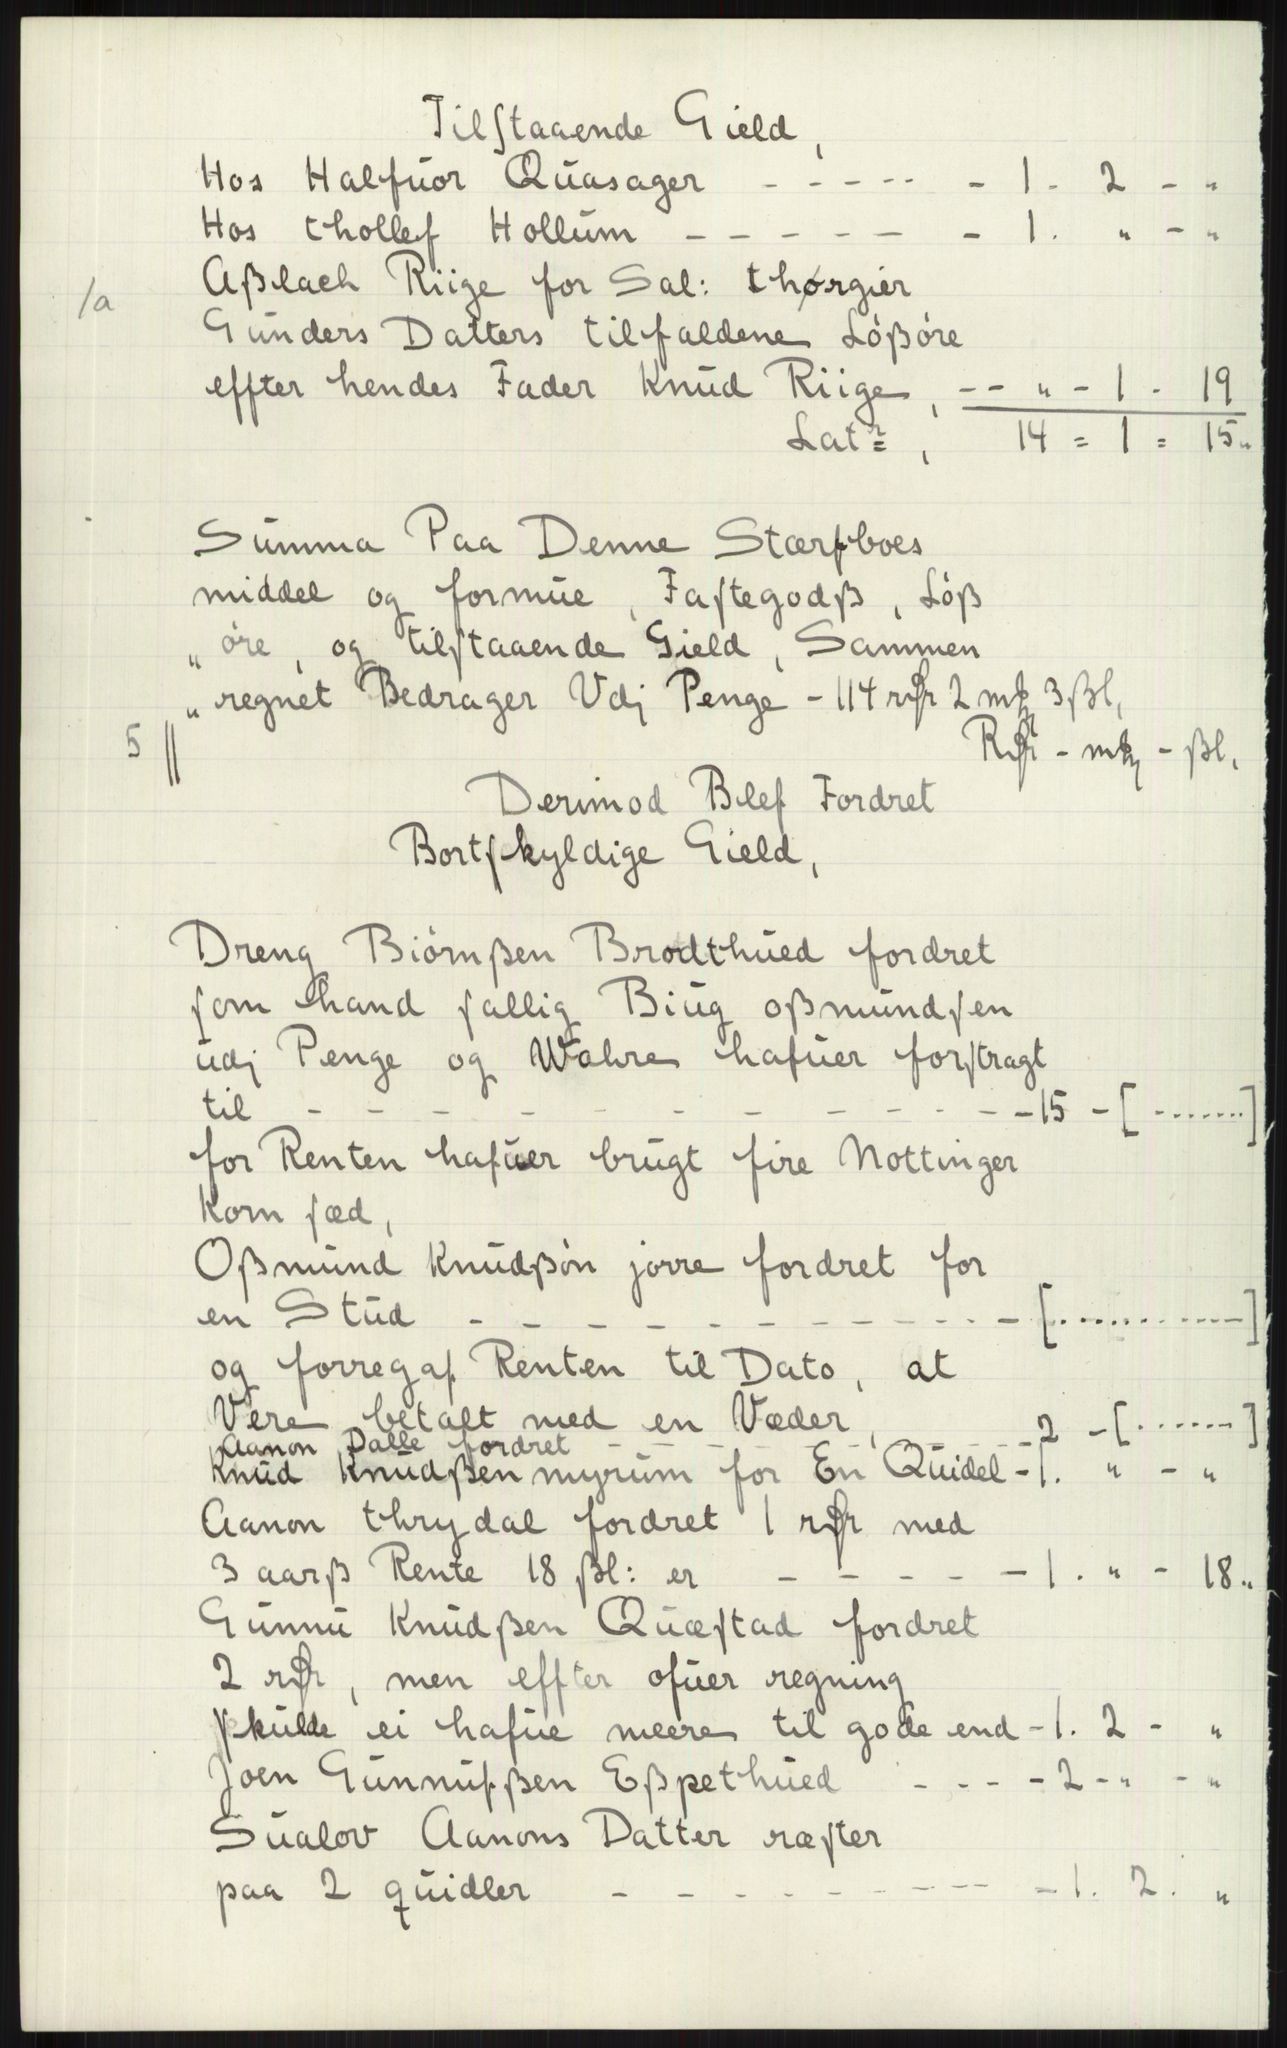 Tilstaaende Gield,
Hos Halfüor Qüasager - - - - - - 1 - 2 - "
Hos thollef Hollüm - - - - - - 1. " - "
/a Aßlach Riige for Sal: thorgier
Günders Datters tilfaldene Lößöre
effter hendes Fader Knüd Riige, - - " - 1 - 19
Lat:, 14 = 1 = 15 "
Sümma Paa Denne Stærfboes
middel og formüe, Fastegodß, Löß
" öre, og tilstaaende Gield, Sammen
" regnet Bedrager Vdj Penge - 114 rdr 2 mk 3 ßl,
5 || Rdr - mk - ßl,
Derimod Blef Fordret
Bortskyldige Gield,
Dreng Biörnßen Brodthüed fordret
som hand sallig Biüg oßmündsen
üdj Penge og Wahre hafüer forstragt
til - - - - - - - - - - - - 15 - [.......]
for Renten hafüer brügt fire Nottinger
korn sæd,
Oßmünd Knüdßön jorre fordret for
en Stüd - - - - - - - - - - - [............]
og forregaf Renten til Dato, at
Vere betalt med en Væder, - - - 2 - [.......]
Aanon Dalle fordret - - - - - -
Knüd Knüdßen myrüm for En Qüidel - 1. " - "
Aanon thrydal fordret 1 rdr med
3 aarß Rente 18 ßl: er - - - - - 1. " - 18 "
Günnü Knüdßen Qüæstad fordret
2 rdr, men effter ofüer regning
skülde ei hafüe meere til gode end - 1. 2 - "
Joen Günnüfßen Eßpethüed - - - - 2 - " - "
Süalov Aanons Datter ræster
paa 2 qüidler - - - - - - - - - 1. 2. "